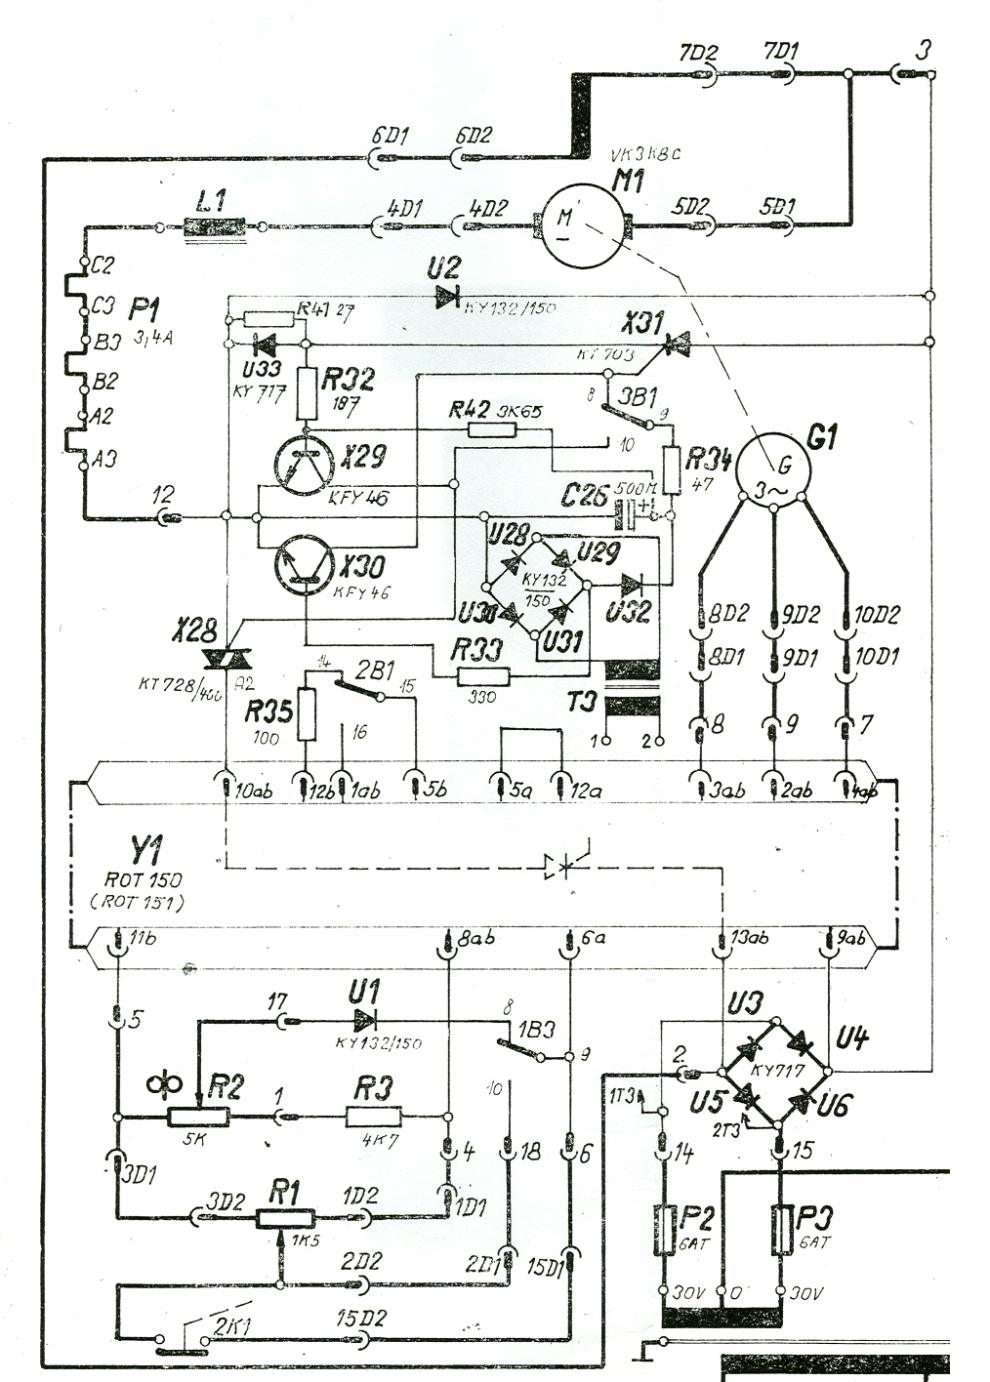 7D2 7D1 3
6D1 6D2
VK3K8C
M1
L1
4D1 4D2 M 5D2 5D1
C2
U2
C3 P1 R41 27 KY132/150
3,4A X31
B3
U33 KT 703
KY717 R32
187
B2 8 3B1
A2 R42 3K65 9 G1
10
A3 X29 R34 G
KFY46 47 3~
12 C26 500M +
U28 U29
X30 KY132
KFY46 150
U30 U31 U32 8D2 9D2 10D2
X28 R33 8D1 9D1 10D1
14 2B1 15
KT728/400 A2 330 T3
R35
100 16 1 2 8 9 7
10ab 12b 1ab 5b 5a 12a 3ab 2ab 4ab
Y1
ROT 150
(ROT 151)
11b 8ab 6a 13ab 9ab
5 17 U1 8 1B3 U3 U4
KY132/150 9 2 KY717
R2 1 R3 10 1T3 U5 U6
5K 4K7 2T3
3D1 4 18 6 14 15
3D2 R1 1D2 1D1 P2 P3
1K5 6AT 6AT
2D2 2D1 15D1
30V 0 30V
2K1 15D2